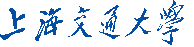 上海交通大學